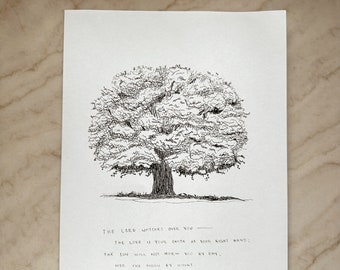 THE LORD WATCHES OVER YOU —
THE LORD IS YOUR SHADE AT YOUR RIGHT HAND;
THE SUN WILL NOT HARM YOU BY DAY,
NOR THE MOON BY NIGHT.